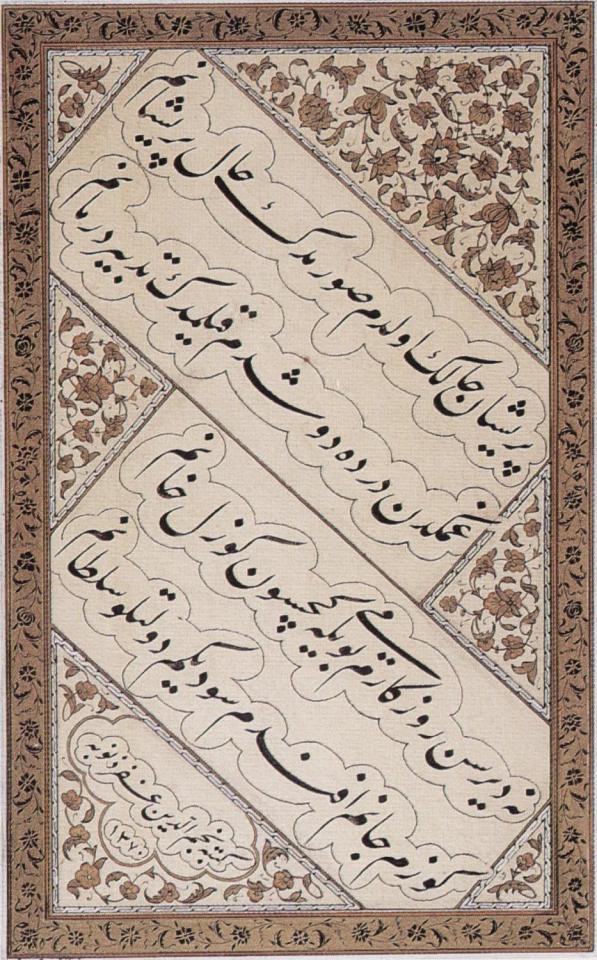 پریشان حالك اولدم صورمدك حال پریشانم
غمكدن درده دوشدم قیلمدك تدبیر درمانم
نه دیرسن روزکارم بویله می کچسون کوزل خانم
کوزم جانم افندم سودیکم دولتلو سلطانم
کتبه نجم الدین غفر ذنوبه
۱۳۷۰